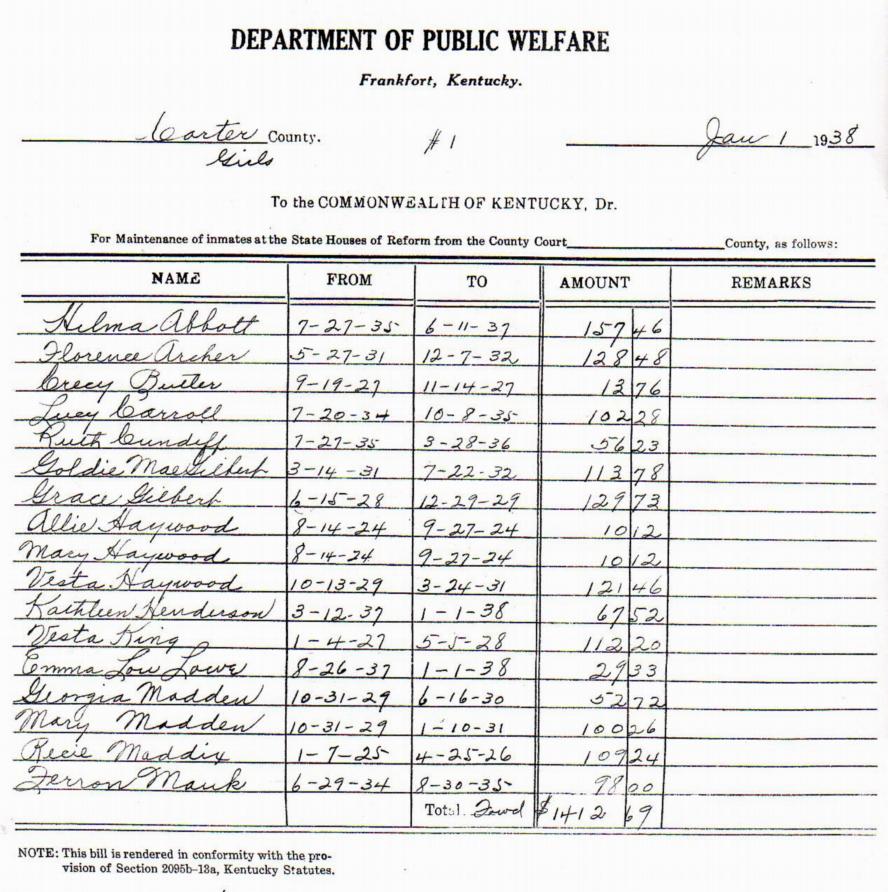 DEPARTMENT OF PUBLIC WELFARE
Frankfort, Kentucky.
Carter County. #1 Jan 1 1938
Girls
To the COMMONWEALTH OF KENTUCKY, Dr.
For Maintenance of inmates at the State Houses of Reform from the County Court County, as follows:
NAME FROM TO AMOUNT REMARKS
Hilma Abbott 7-27-35 6-11-37 157 46
Florence Archer 5-27-31 12-7-32 128 48
Crecy Butler 9-19-27 11-14-27 13 76
Lucy Carroll 7-20-34 10-8-35 102 28
Ruth Cundiff 7-27-35 3-28-36 56 23
Goldie Mae Gilbert 3-14-31 7-22-32 113 78
Grace Gilbert 6-15-28 12-29-29 129 73
Allie Haywood 8-14-24 9-27-24 10 12
Mary Haywood 8-14-24 9-27-24 10 12
Vesta Haywood 10-13-29 3-24-31 121 46
Kathleen Henderson 3-12-37 1-1-38 67 52
Vesta King 1-4-27 5-5-28 112 20
Emma Lou Lowe 8-26-37 1-1-38 29 33
Georgia Madden 10-31-29 6-16-30 52 72
Mary Madden 10-31-29 1-10-31 100 26
Recie Maddix 1-7-25 4-25-26 109 24
Ferron Mauk 6-29-34 8-30-35 98 00
Total Fowd $1412 69
NOTE: This bill is rendered in conformity with the pro-
vision of Section 2095b-13a, Kentucky Statutes.